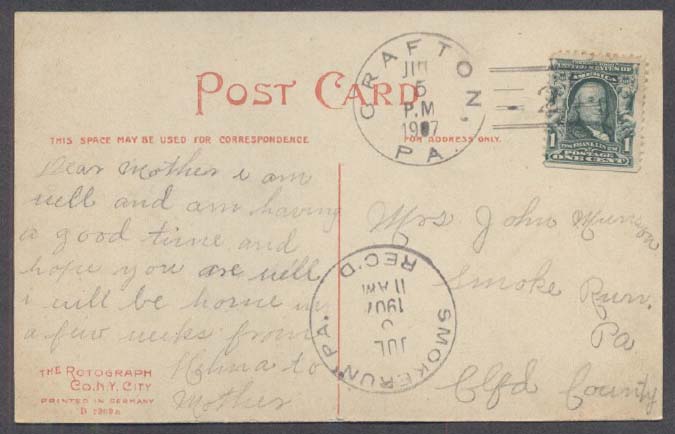 POST CARD
CRAFTON, PA.
5
P.M
1907
2
UNITED STATES OF
AMERICA
1 1
FRANKLIN
POSTAGE
ONE CENT
THIS SPACE MAY BE USED FOR CORRESPONDENCE
FOR ADDRESS ONLY.
Dear Mother i am
well and am having
a good time and
hope you are well
i will be home in
a few weeks from
to
Mother
Mrs John
Smoke Run.
Pa
Clfd County
SMOKERUN PA. REC'D
JUL
1907
11 AM
THE ROTOGRAPH
CO. N.Y. CITY
PRINTED IN GERMANY